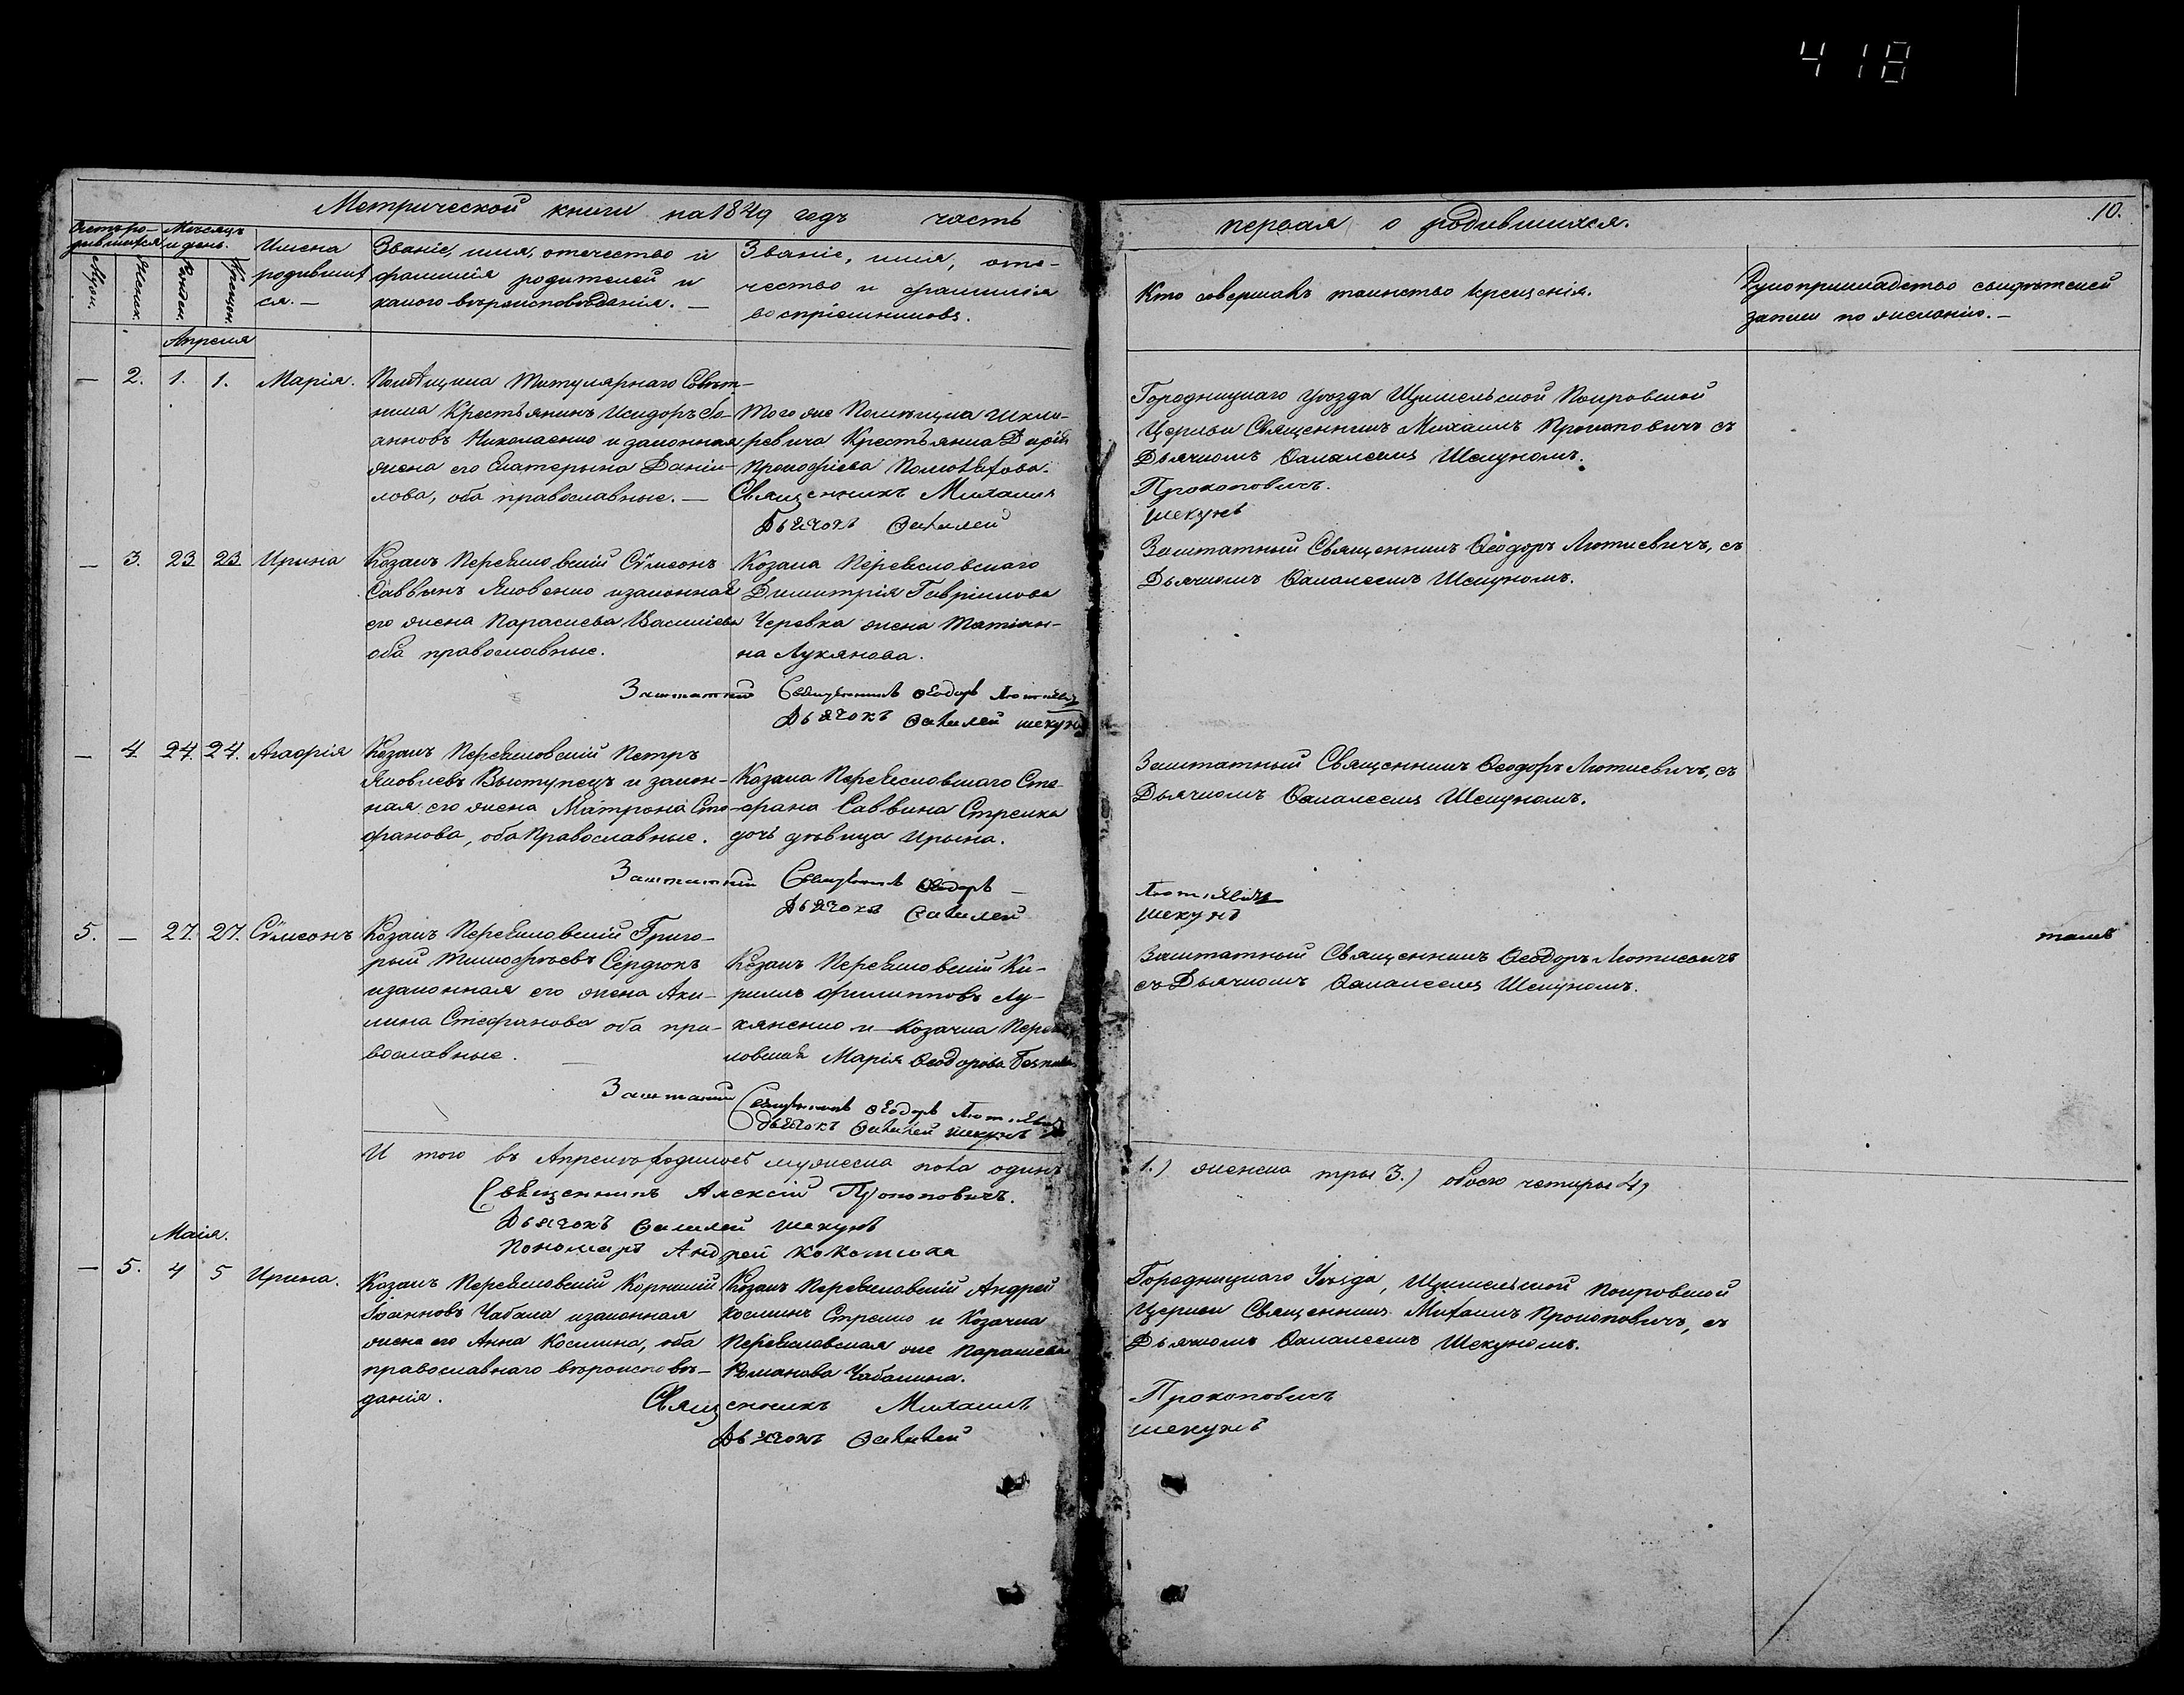 418
Метрической книги на 1849 годъ часть
первая о родившихся.
10.
Мѣсяцъ и день.
Муж.
Женск.
Рожден.
Крещен.
Имена
родившихся.—
Званіе, имя, отечество и
фамилія родителей и
какого вѣроисповѣданія.—
Званіе, имя, оте-
чество и фамилія
воспріемниковъ.
Кто совершалъ таинство крещенія.
Рукоприкладство свидѣтелей
записи по желанію.—
Апреля
— 2. 1. 1. Марія.
Помѣщика Титулярнаго Совѣт-
ника Крестьянинъ Исидоръ Іо-
анновъ Николаенко и законная
жена его Екатерына Даніи-
лова, оба православные.—
Того же Помѣщика
Крестьянка Дарія
Прокофіева
Священникъ Михаилъ
Дьячокъ
Городницкаго Уѣзда Покровской
Церкви Священникъ Михаилъ Прокоповичъ съ
Дьячкомъ Шекуномъ.
Прокоповичъ.
Шекунъ
— 3. 23. 23. Ирина
Козакъ Переяславскій Сѵмеонъ
Саввинъ Яковенко и законная
его жена Параскева Василіева
оба православные.
Козака Переясловскаго
Димитрія Гавріилова
Черевка жена Татіан-
на Лукянова.
Заштатній Священникъ Ѳеодоръ
Дьячокъ Шекунъ
Заштатный Священникъ Ѳеодоръ Люткевичъ, съ
Дьячкомъ Шекуномъ.
— 4 24. 24. Агафія
Козакъ Переяславскій Петръ
Яковлевъ и закон-
ная его жена Матрона Сте-
фанова, оба Православные.
Козака Переясловскаго Сте-
фана Саввина Стрелка
дочь дѣвица Ирына.
Заштатній Священникъ Ѳеодоръ —
Дьячокъ
Заштатный Священникъ Ѳеодоръ Люткевичъ, съ
Дьячкомъ Шекуномъ.
Люткевичъ
Шекунъ
5. — 27. 27. Сѵмеонъ
Козакъ Переяславскій Григо-
рый Тимофѣевъ Сердюкъ
и законная его жена Аки-
лина Стефанова оба пра-
вославные.
Козакъ Переяславскій Ки-
рилъ Филипповъ Лу-
кяненко и Козачка
Марія Ѳеодорова
Заштатній Священникъ Ѳеодоръ
Дьячокъ Шекунъ
Заштатный Священникъ Ѳеодоръ Люткевичъ
съ Дьячкомъ Шекуномъ.
И того въ Апрелѣ родилось мужеска пола одинъ
1.) женска тры 3.) обоего четыры 4)
Священникъ Алексій Прокоповичъ.
Дьячокъ Шекунъ
Пономарь Андрей
Маія.
— 5. 4 5 Ирина.
Козакъ Переяславскій Корнилій
Іоанновъ Чабака и законная
жена его Анна Космина, оба
православнаго вѣроисповѣ-
данія.
Козакъ Переяславскій Андрей
Косминъ и Козачка
Переяславская же Параскева
Романова
Священникъ Михаилъ
Дьячокъ
Городницкаго Уѣзда, Покровской
Церкви Священникъ Михаилъ Прокоповичъ, съ
Дьячкомъ Шекуномъ.
Прокоповичъ
Шекунъ